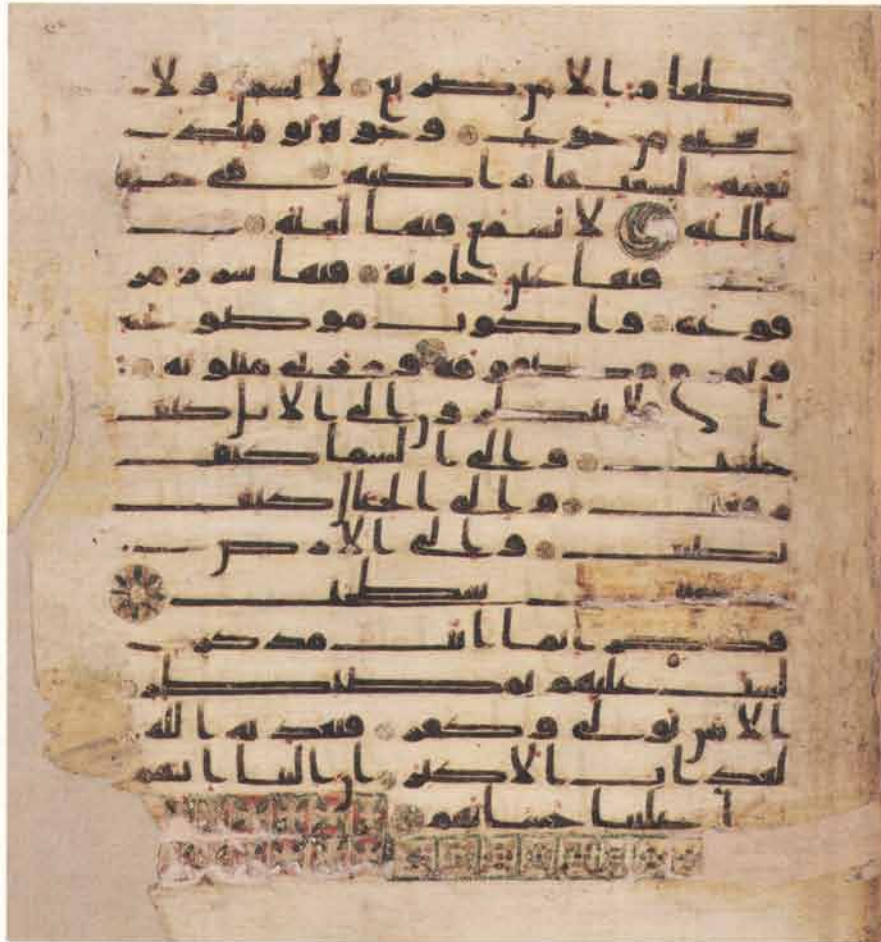 طعام الا من ضريع لا يسمن ولا
يغنى من جوع وجوه يومئذ
نعمة لسعيها راضية فى جنة
عالية لا تسمع فيها لغية
فيها عين جارية فيها سرر مر
فوعة واكوب موضوعة
ونمرق مصفوفة مبثوثة
افلا ينظرون الى الابل كيف
خلقت والى السما كيف
رفعت والى الجبال كيف
نصبت والى الارض
سطحت
فذكر انما انت مذكر
لست عليهم بمصيطر
الا من تولى وكفر فيعذبه الله
العذاب الاكبر ان الينا ايابهم
علينا حسابهم